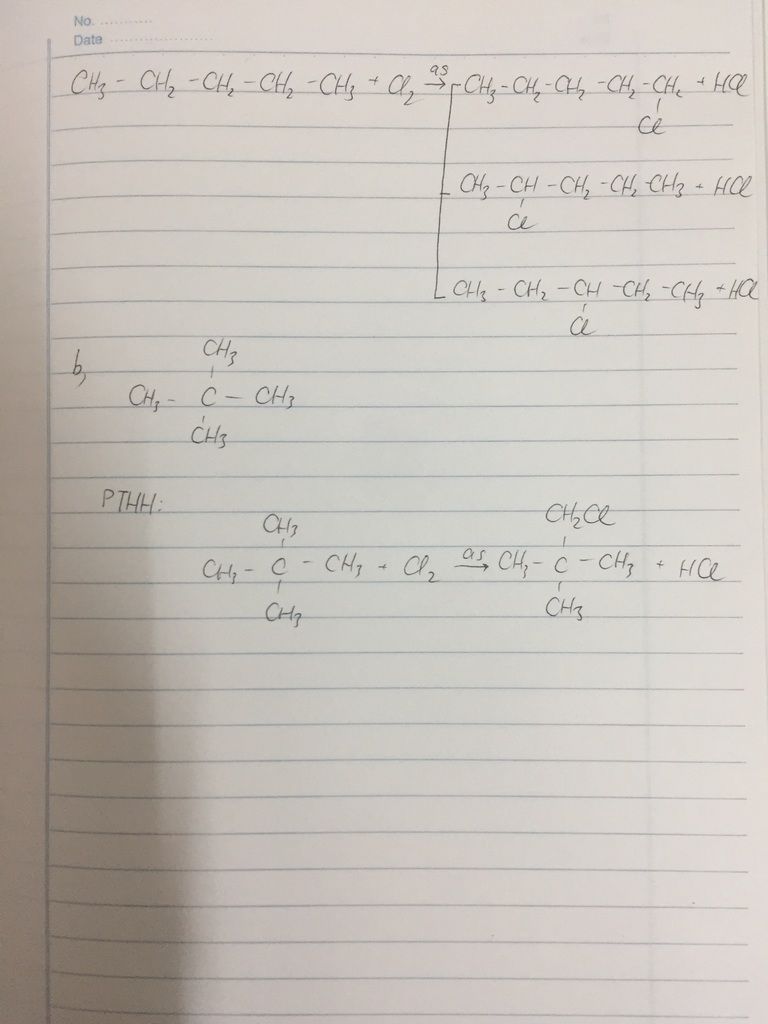 No. ............
Date ........................
as
CH3 - CH2 - CH2 - CH2 - CH3 + Cl2 → CH3 - CH2 - CH2 - CH2 - CH2 + HCl
Cl
CH3 - CH - CH2 - CH2 - CH3 + HCl
Cl
CH3 - CH2 - CH - CH2 - CH3 + HCl
Cl
b,
CH3
CH3 - C - CH3
CH3
PTHH:
CH3 CH2Cl
as
CH3 - C - CH3 + Cl2 → CH3 - C - CH3 + HCl
CH3 CH3